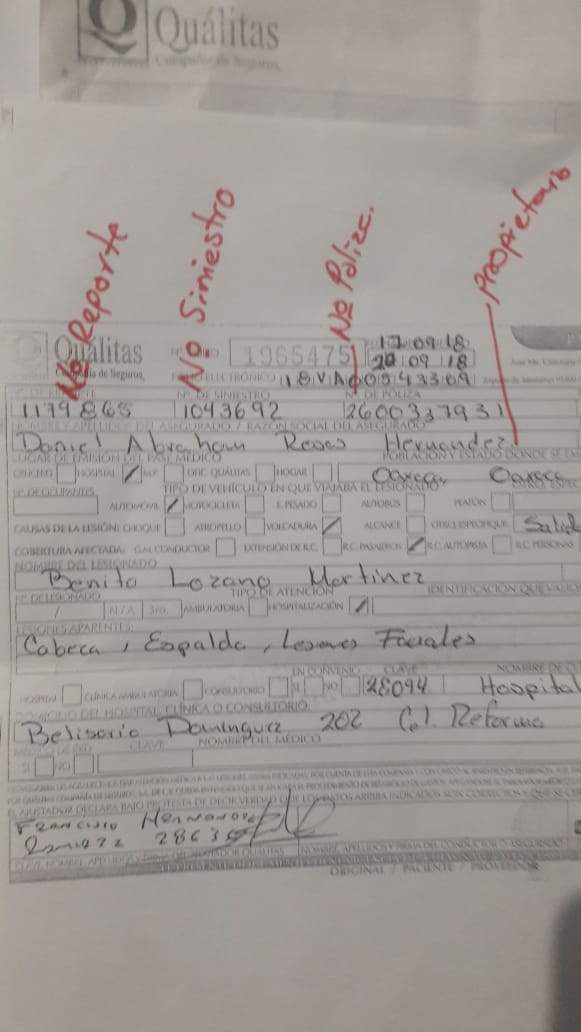 Quálitas
Compañía de Seguros
No Reporte
No Siniestro
No Póliza.
Propietario
Quálitas
Compañía de Seguros
1965475
17 09 18
20 09 18
ELECTRÓNICO
Nº. DE SINIESTRO Nº. DE PÓLIZA
1179865 1043692 2600337931
NOMBRE Y APELLIDOS DEL ASEGURADO / RAZÓN SOCIAL DEL ASEGURADO
Daniel Abraham Reyes Hernandez
LUGAR DE EMISIÓN DEL PASE MÉDICO POBLACIÓN Y ESTADO DONDE SE
CRUCERO HOSPITAL OFIC. QUÁLITAS HOGAR Oaxaca, Oaxaca
Nº. DE OCUPANTES TIPO DE VEHÍCULO EN QUE VIAJABA EL LESIONADO
AUTOMÓVIL MOTOCICLETA E. PESADO AUTOBÚS PEATÓN
CAUSAS DE LA LESIÓN: CHOQUE ATROPELLO VOLCADURA ALCANCE OTRO, ESPECIFIQUE
COBERTURA AFECTADA: G.M. CONDUCTOR EXTENSIÓN DE R.C. R.C. PASAJEROS R.C. AUTOPISTA R.C. PERSONAS
NOMBRE DEL LESIONADO
Benito Lozano Martinez
Nº DE LESIONADO TIPO DE ATENCIÓN IDENTIFICACIÓN QUE
/ N/A AMBULATORIA HOSPITALIZACIÓN
LESIONES APARENTES:
Cabeca, Espalda, Lesiones Faciales
EN CONVENIO CLAVE
HOSPITAL CLÍNICA AMBULATORIA CONSULTORIO SI NO 28094 Hospital
DOMICILIO DEL HOSPITAL, CLÍNICA O CONSULTORIO:
Belisario Dominguez 202 Col. Reforma
MÉDICO DE RED CLAVE NOMBRE DEL MÉDICO
SI NO
EL AJUSTADOR DECLARA BAJO PROTESTA DE DECIR VERDAD QUE LOS DATOS ARRIBA INDICADOS SON CORRECTOS Y QUE SE
Francisco
CLAVE, NOMBRE, APELLIDOS Y FIRMA DEL AJUSTADOR QUÁLITAS NOMBRE, APELLIDOS Y FIRMA DEL CONDUCTOR O ASEGURADO
ORIGINAL / PACIENTE / PROVEEDOR